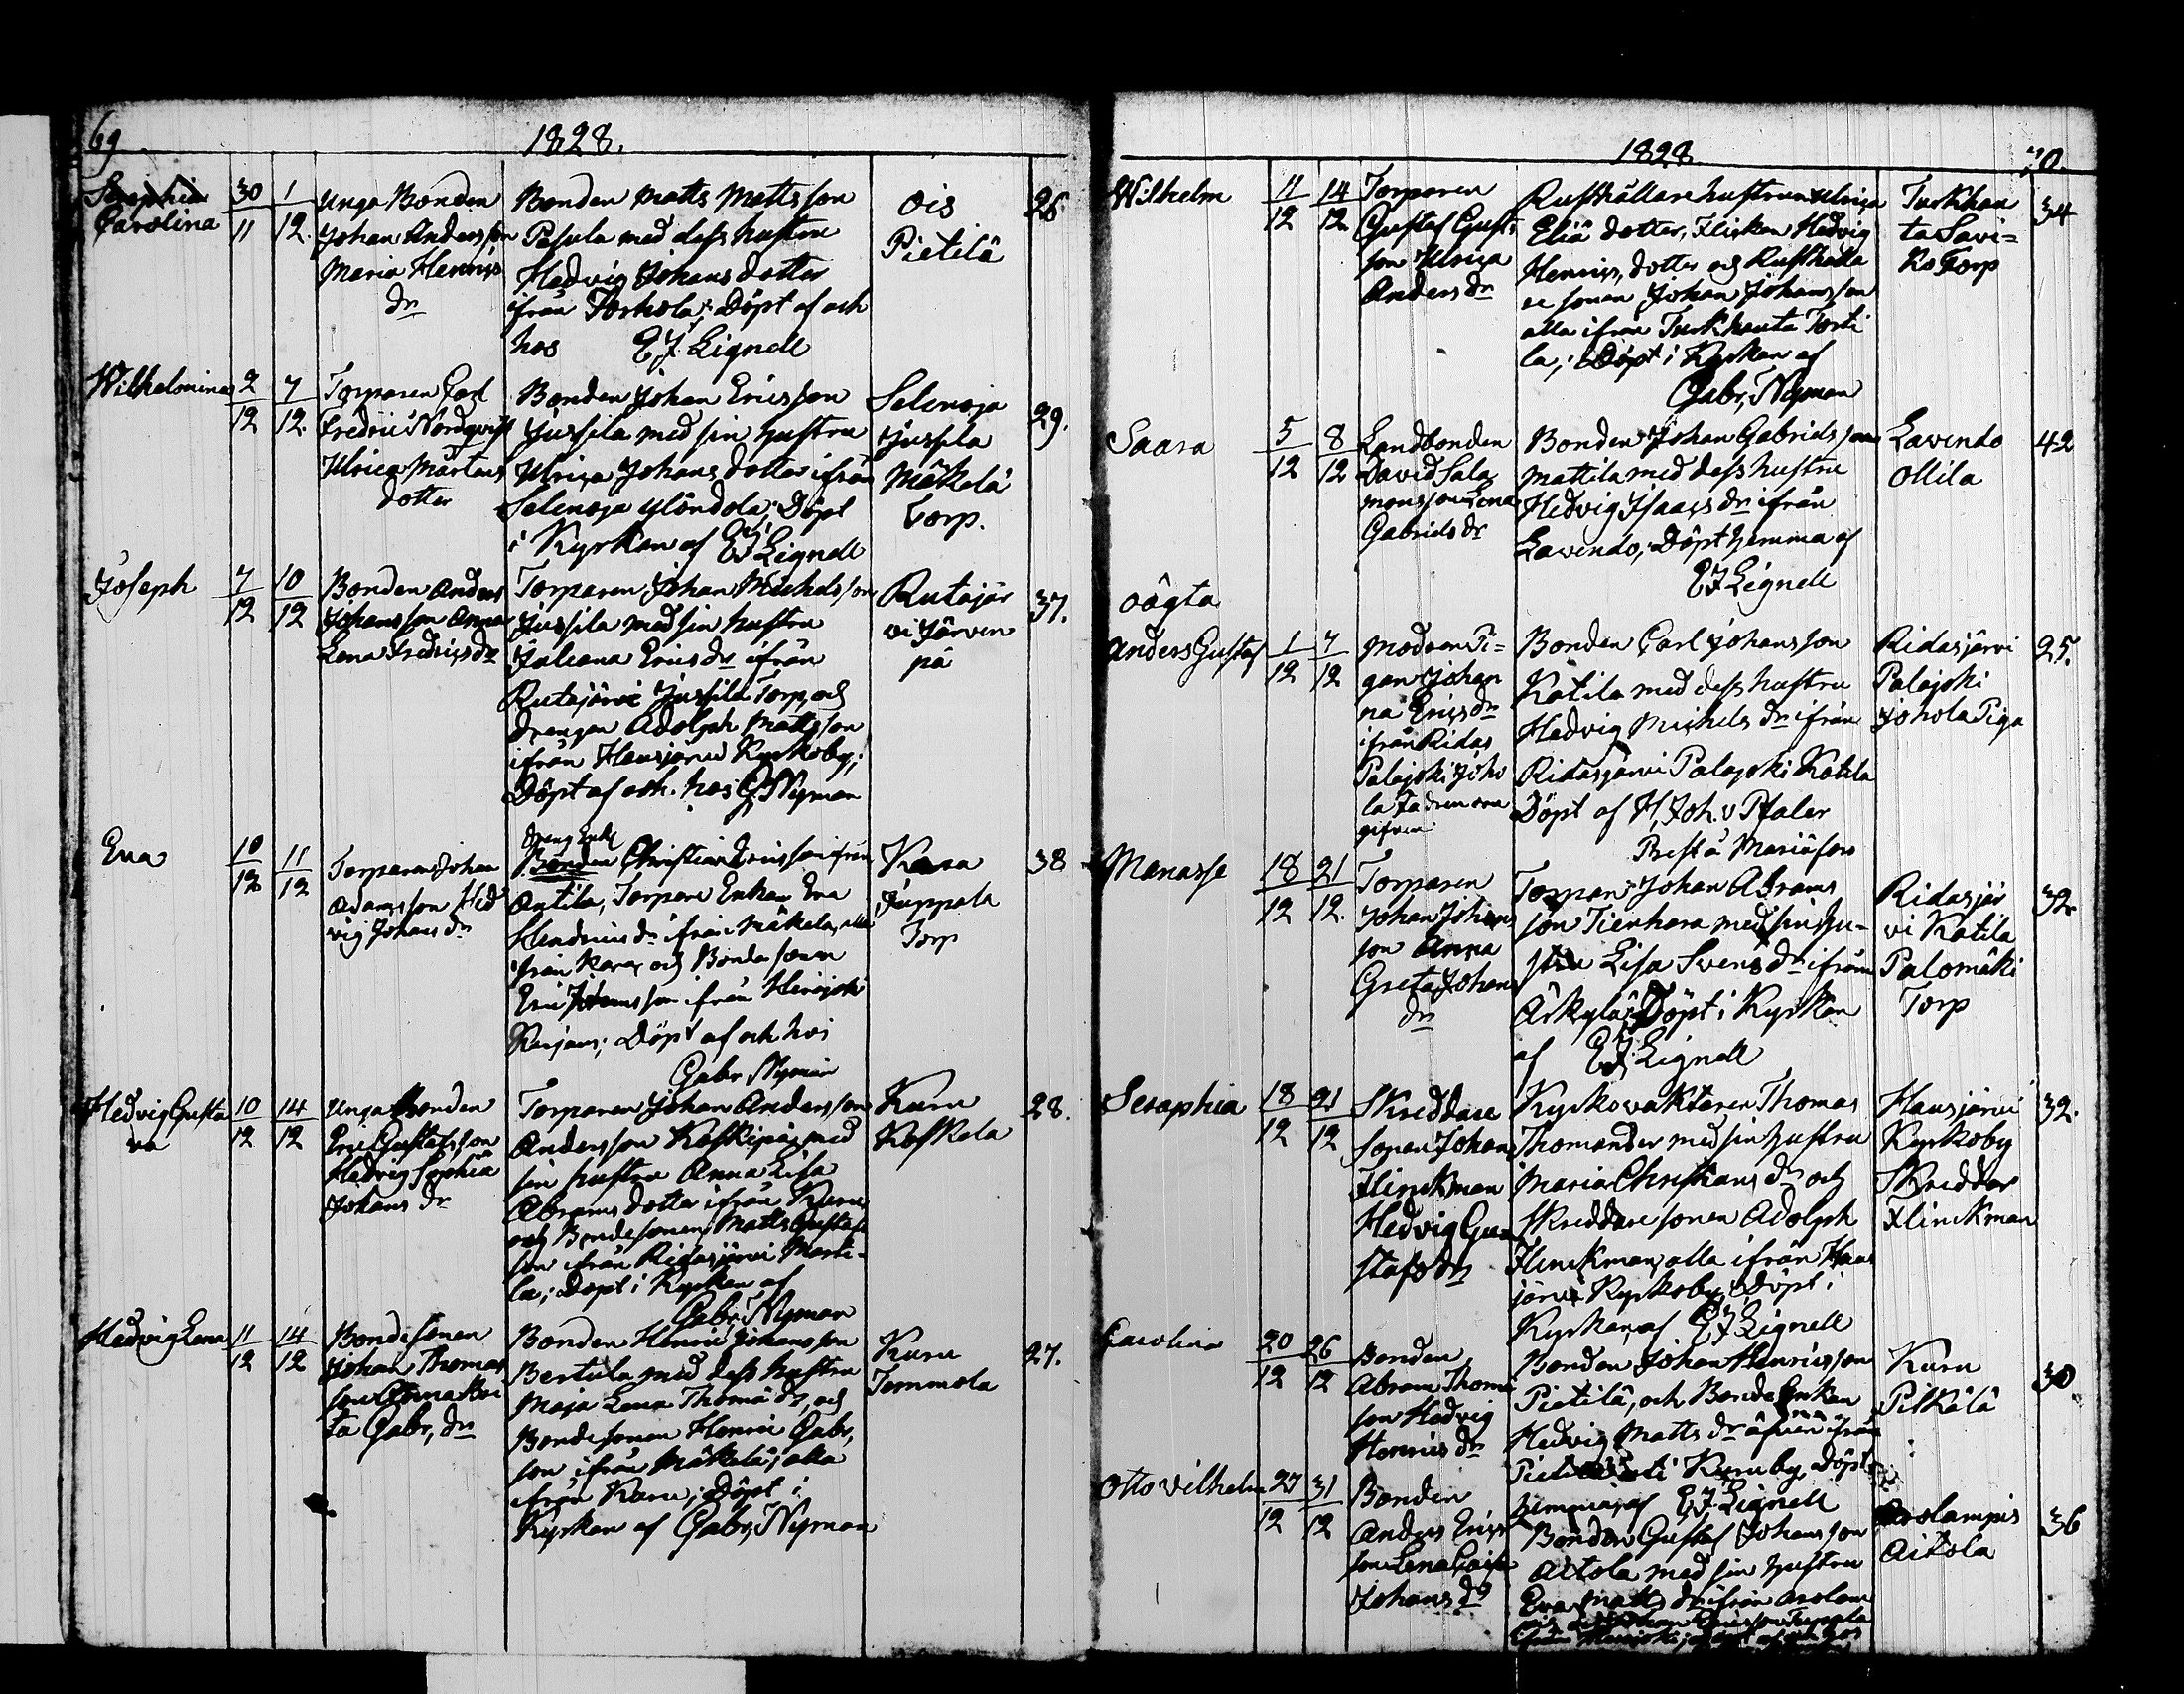 69
1828.
Seraphia
Carolina
30 1
11 12.
Unga Bonden
Johan Andersson
Maria Henrics
dr
Bonden Matts Mattsson
Pasula med dess hustru
Hedvig Johans dotter
ifrån Torhola; Döpt af och
hos E J Lignell
Ois
Pietilä
26
Wilhelmina
2 7
12 12.
Torparen Carl
Fredric Nordqvist
Ulrica Mårtens
dotter
Bonden Johan Ericsson
Jussila med sin hustru
Ulrica Johans dotter ifrån
Selenoja Ylöndola; Döpt
i Kyrkan af E J Lignell
Selenoja
Jussila
Mäkelä
Torp.
29.
Joseph
7 10
12 12
Bonden Anders
Johansson Anna
Lena Fredrics dr
Torparen Johan Michelsson
Jussila med sin hustru
Juliana Erics dr ifrån
Rutajärvi Jussila Torp, och
drengen Adolph Mattsson
ifrån Hausjärvi Kyrkoby;
Döpt af och hos G Nyman
Rutajär
vi Järven
pä
37.
Eva
10 11
12 12
Torparen Johan
Adamsson Hed
vig Johans dr
Dreng Enkl
Bonden Christian Ericsson ifrån
Antila, Torpare Enkan Eva
Hendrics dr ifrån Mäkelä, alla
ifrån Kara och Bonde sonen
Eric Johansson ifrån Hirvijoki
Reijans; Döpt af och hos
Gabr Nyman
Kara
Juppala
Torp
38
Hedvig Gusta
va
10 14
12 12
Unga Bonden
Eric Gustafsson
Hedvig Sophia
Johans dr
Torparen Johan Andersson
Andersson Koskipää med
sin hustru Anna Lisa
Abrams dotter ifrån Kuru
och Bondesonen Matts Gustafs
son ifrån Ridasjärvi Marti-
la; Döpt i Kyrkan af
Gabr, Nyman
Kuru
Koskela
28.
Hedvig Lena
11 14
12 12
Bondesonen
Johan Thomas
son Anna Bri
ta Gabr, dr
Bonden Henric Johansson
Bertula med dess hustru
Maja Lena Thomä dr, och
Bondesonen Henric Gabr,
son ifrån Mäkelä, alla
ifrån Karu; Döpt i
Kyrkan af Gabr, Nyman
Kuru
Temmola
27.
1828
70.
Wilhelm
11 14
12 12
Torparen
Gustaf Gusts
son Ulrica
Anders dr
Rusthållare hustrun Ulrica
Eliä dotter, Flickan Hedvig
Henrics, dotter och Rusthålla
re sonen Johan Johansson
alla ifrån Turkhauta Torti
la; Döpt i Kyrkan af
Gabr, Nyman
Turkhau
ta Savi=
ko Torp
34
Saara
5 8
12 12
Landbonden
David Salo
monsson Lena
Gabriels dr
Bonden Johan Gabrielsson
Mattila med dess hustru
Hedvig Isaacs dr ifrån
Lavendo; Döpt hemma af
E J Lignell
Lavendo
Ollila
42
Oägta
Anders Gustaf
1 7
12 12
Modren Pi=
gan Johan
na Erics dr
ifrån Ridas
Palojoki Joho
la Fadren
Bonden Carl Johansson
Katila med dess hustru
Hedvig Michels dr ifrån
Ridasjärvi Palojoki Katila
Döpt af H, Joh. v Pfaler
Prest å Mariäfors
Ridasjärvi
Palojoki
Johola Piga
25.
Manasse
18 21
12 12.
Torparen
Johan Johans
son Anna
Greta Johans
dr
Torparn Johan Abrams
son Tienhara med sin hu-
stru Lisa Svens dr ifrån
Äikylä; Döpt i Kyrkan
af E J Lignell
Ridasjär
vi Katila
Palomäki
Torp
32
Seraphia
18 21
12 12
Skreddare
sonen Johan
Flinckman
Hedvig Gu
stafs dr
Kyrkovaktaren Thomas
Thomander med sin hustru
Maria Christians dr och
Skreddare sonen Adolph
Flinckman, alla ifrån Haus
järvi Kyrkoby; Döpt i
Kyrkan, af E J Lignell
Hausjärvi
Kyrkoby
Skreddar
Flinckman
32.
Carolina
20 26
12 12
Bonden
Abram Thoma
son Hedvig
Henrics dr
Bonden Johan Henricsson
Pietilä, och Bonde Enkan
Hedvig Matts dr äfven ifrån
Kuruby, Döpt
hemma, af E J Lignell
Kuru
Pitkälä
30
Otto Vilhelm
27 31
12 12
Bonden
Anders Erics
son Lena Caisa
Johans dr
Bonden Gustaf Johansson
Aitola med sin hustru
Eva Matts dr ifrån Arolam
Arolampis
Aitola
36